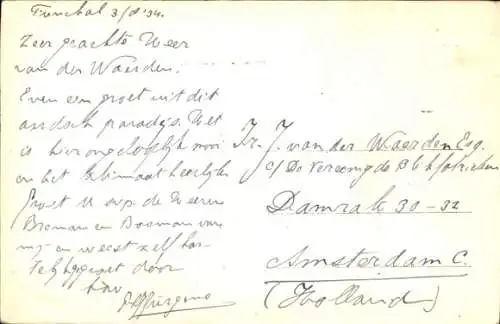 Funchal 3/8 '34.
Zeer geachte Heer
van der Waerden.
Even een groet uit dit
aardsch paradijs. Het
is hier ongelooflijk mooi
en het klimaat heerlijk
Groet U svp de Heeren
Breman en Bosman van
mij en weest zelf har-
telijk gegroet door
Ir. J. van der Waerden Esq.
c/o De Vereenigde Blikfabrieken
Damrak 30-32
Amsterdam C.
(Holland)